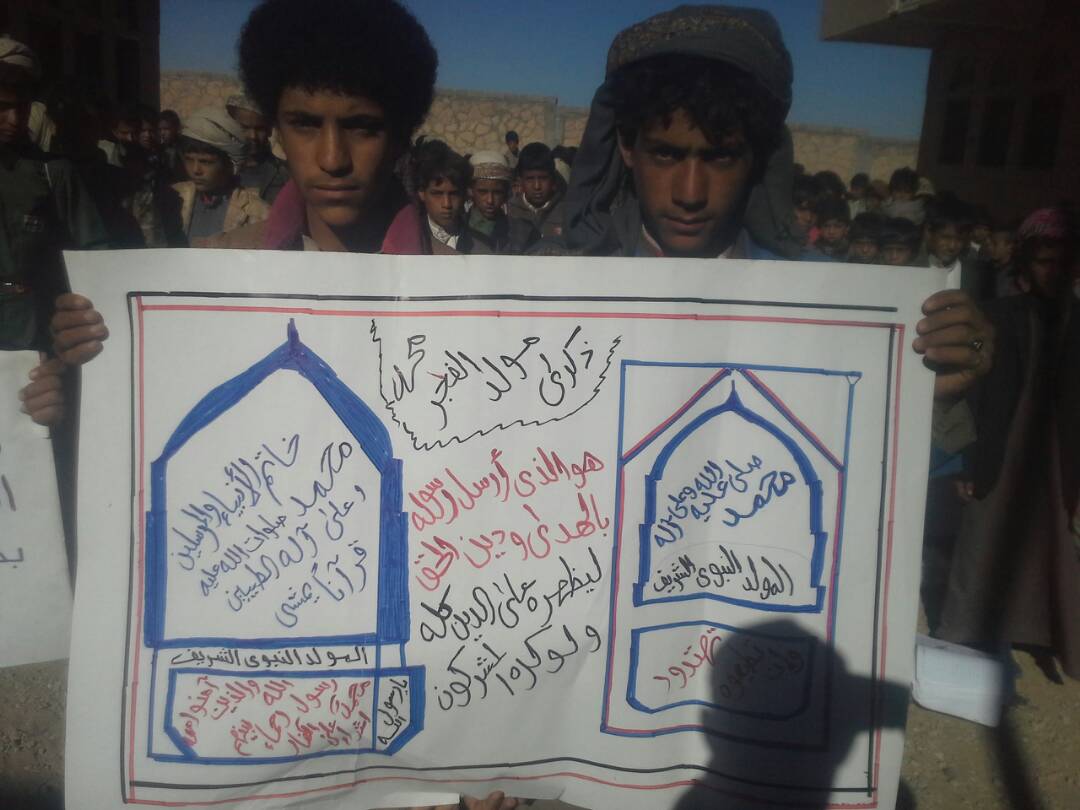 ذكرى مولد الفجر
محمد
صلى عليه
والله وعلى آله
محمد
المولد النبوي الشريف
وإن تطيعوه
تهتدوا
هو الذي أرسل رسوله
بالهدى ودين الحق
ليظهره على الدين كله
ولو كره المشركون
خاتم الأنبياء والمرسلين
محمد صلوات الله عليه
وعلى آله الطيبين
قرآناً يمشي
المولد النبوي الشريف
محمد رسول الله والذين آمنوا معه
أشداء على الكفار رحماء بينهم
يا رسول الله